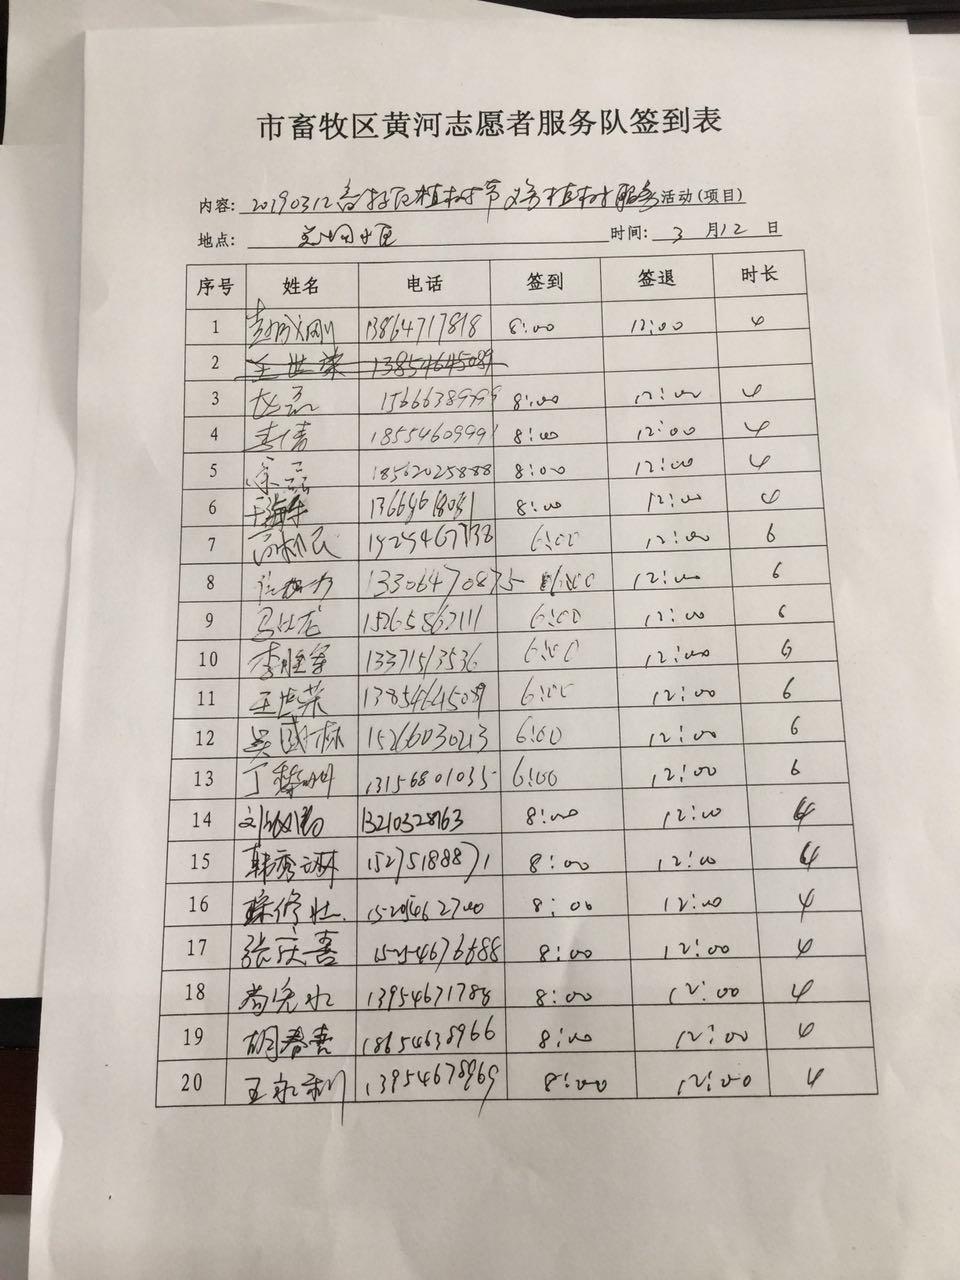 市畜牧区黄河志愿者服务队签到表
内容: 20190312 植树节义务植树服务活动(项目)
地点: 时间: 3 月 12 日
序号 姓名 电话 签到 签退 时长
1 13864717818 8:00 12:00 4
2 王世荣 13854645089
3 15666389999 8:00 12:00 4
4 李倩 18554609991 8:00 12:00 4
5 18562025888 8:00 12:00 4
6 8:00 12:00 4
7 6:00 12:00 6
8 13306470875 6:00 12:00 6
9 15265862111 6:00 12:00 6
10 李胜军 13371513536 6:00 12:00 6
11 王世荣 13854645089 6:00 12:00 6
12 吴国栋 15266030213 6:00 12:00 6
13 13156801035 6:00 12:00 6
14 13210328763 8:00 12:00 4
15 韩秀琳 15275188871 8:00 12:00 4
16 8:00 12:00 4
17 张庆喜 15254676688 8:00 12:00 4
18 13954671788 8:00 12:00 4
19 胡春喜 18654638966 8:00 12:00 4
20 王永利 13954678969 8:00 12:00 4